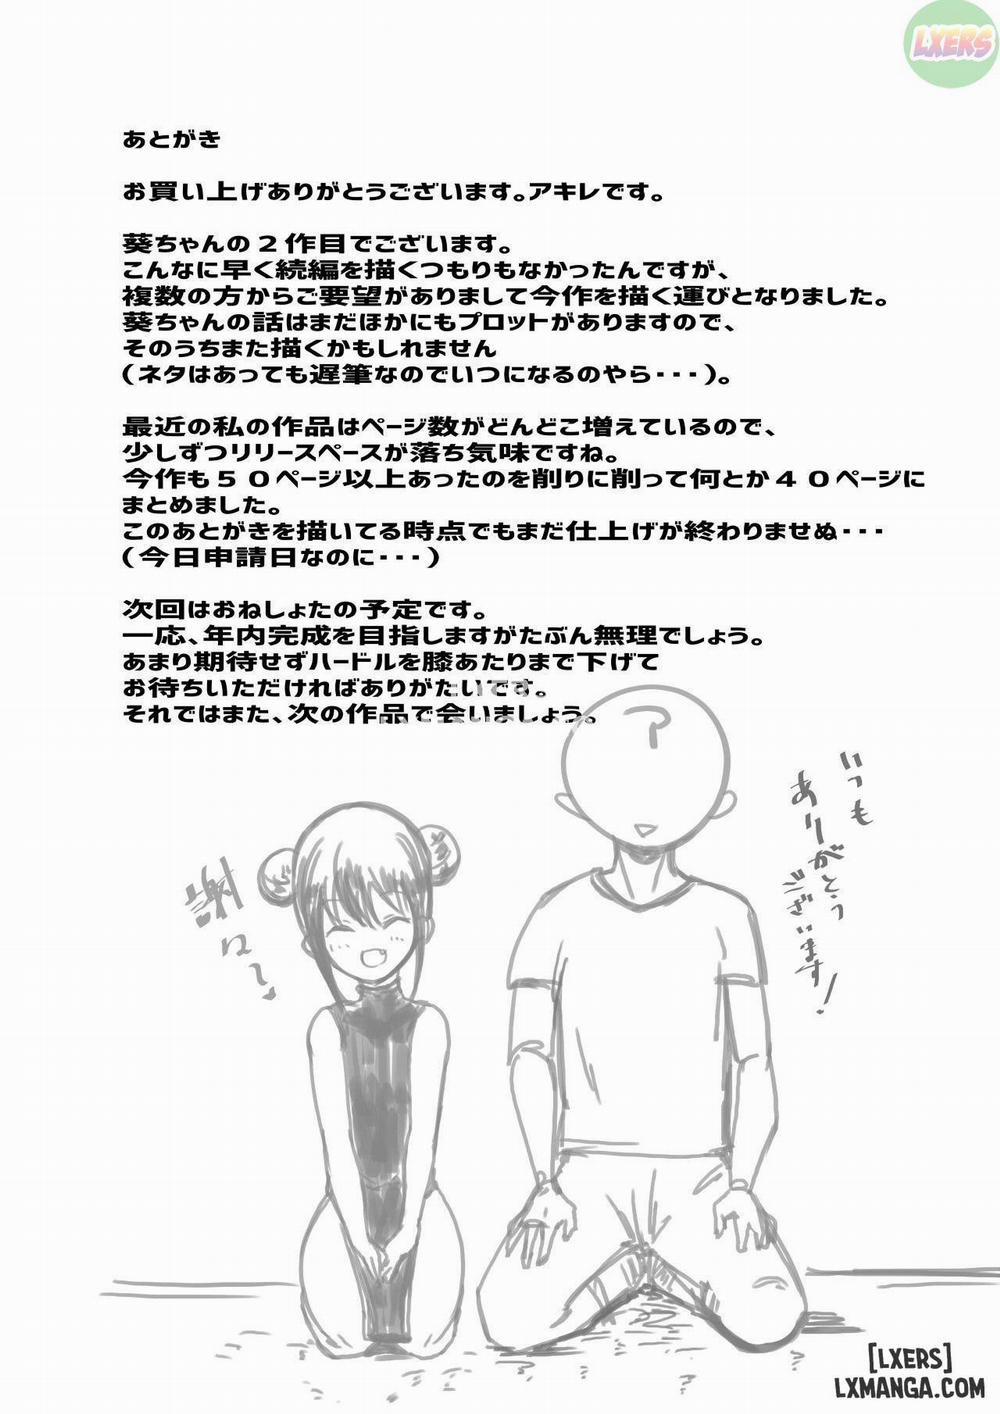 LXERS
あとがき
お買い上げありがとうございます。アキレです。
葵ちゃんの２作目でございます。
こんなに早く続編を描くつもりもなかったんですが、
複数の方からご要望がありまして今作を描く運びとなりました。
葵ちゃんの話はまだほかにもプロットがありますので、
そのうちまた描くかもしれません
（ネタはあっても遅筆なのでいつになるのやら・・・）。
最近の私の作品はページ数がどんどこ増えているので、
少しずつリリースペースが落ち気味ですね。
今作も５０ページ以上あったのを削りに削って何とか４０ページに
まとめました。
このあとがきを描いてる時点でもまだ仕上げが終わりませぬ・・・
（今日申請日なのに・・・）
次回はおねしょたの予定です。
一応、年内完成を目指しますがたぶん無理でしょう。
あまり期待せずハードルを膝あたりまで下げて
お待ちいただければありがたいです。
それではまた、次の作品で会いましょう。
ア
いつも
ありがとう
ございます！
[LXERS]
LXMANGA.COM